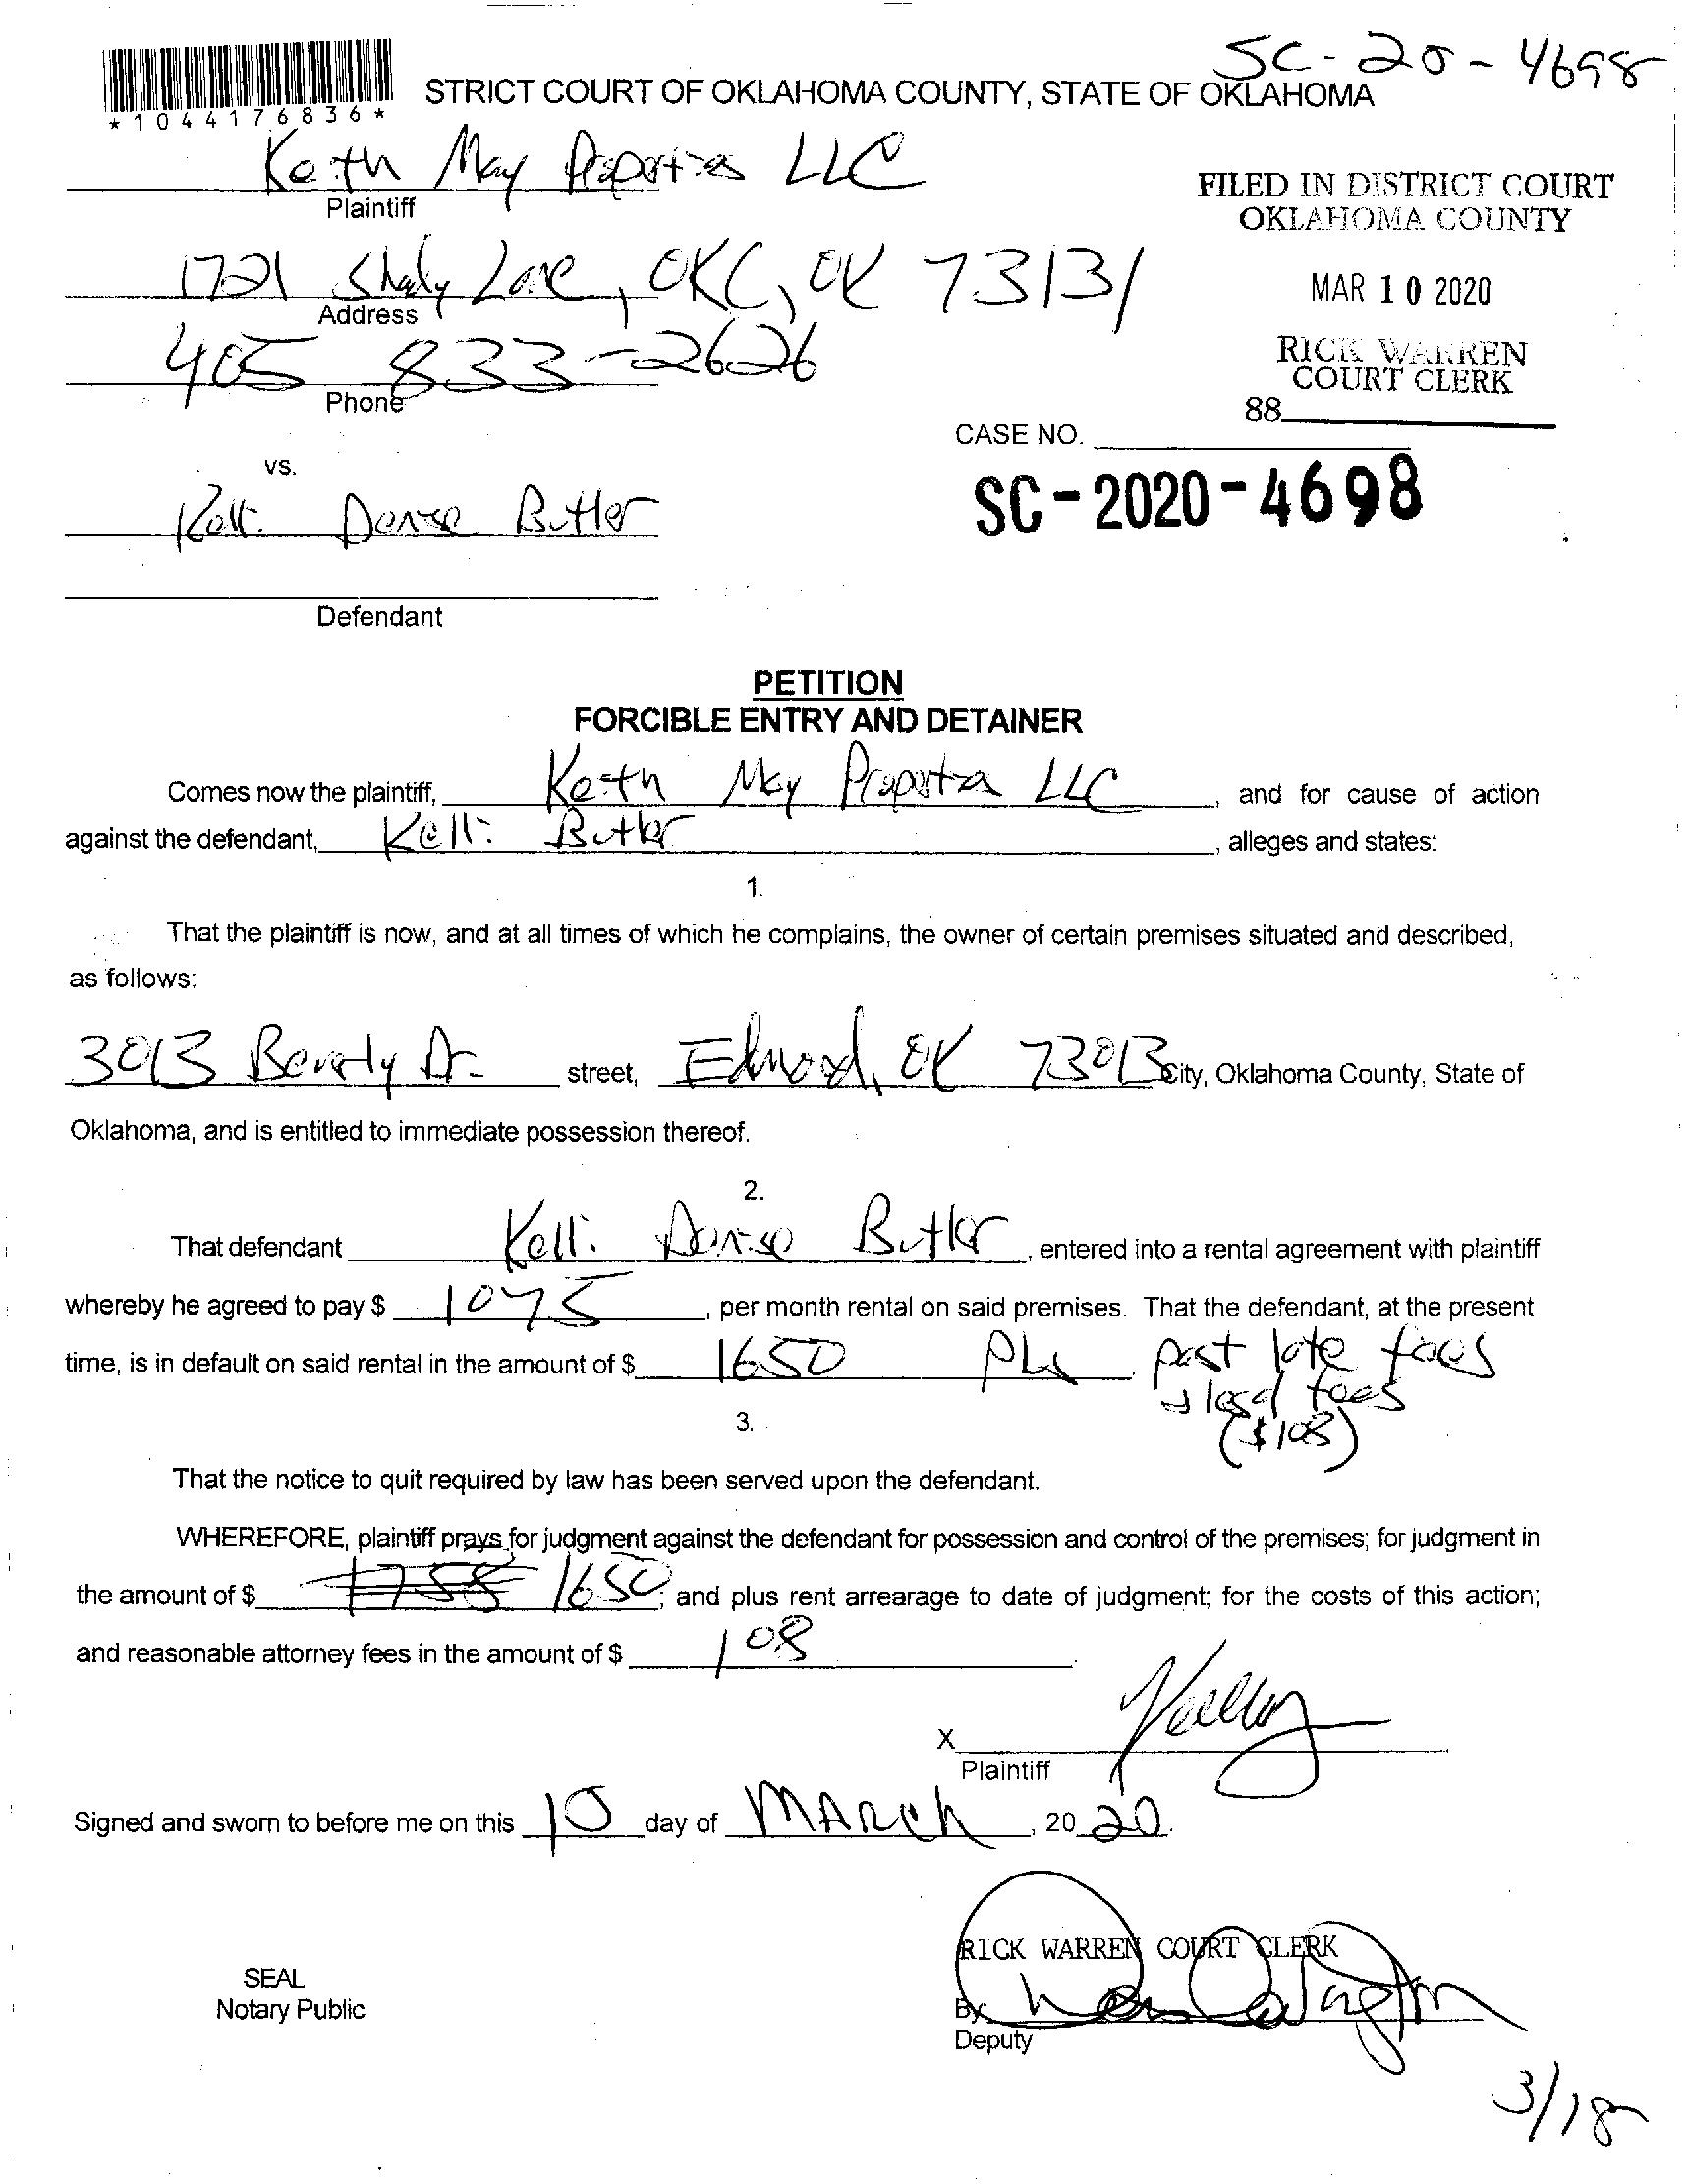 SC-20-4698
STRICT COURT OF OKLAHOMA COUNTY, STATE OF OKLAHOMA
*1044176836*
Keith May Properties LLC
Plaintiff
FILED IN DISTRICT COURT
OKLAHOMA COUNTY
1721 Shady Lane, OKC, OK 73131
Address
MAR 10 2020
405 833-2626
Phone
RICK WARREN
COURT CLERK
88
CASE NO.
vs.
SC-2020-4698
Kelli Denise Butler
Defendant
PETITION
FORCIBLE ENTRY AND DETAINER
Comes now the plaintiff, Keith May Properties LLC, and for cause of action
against the defendant, Kelli Butler, alleges and states:
1.
That the plaintiff is now, and at all times of which he complains, the owner of certain premises situated and described,
as follows:
3013 Beverly Dr street, Edmond, OK 73013 City, Oklahoma County, State of
Oklahoma, and is entitled to immediate possession thereof.
2.
That defendant Kelli Denise Butler, entered into a rental agreement with plaintiff
whereby he agreed to pay $ 1075, per month rental on said premises. That the defendant, at the present
time, is in default on said rental in the amount of $ 1650 plus past late fees
fees
($108)
3.
That the notice to quit required by law has been served upon the defendant.
WHEREFORE, plaintiff prays for judgment against the defendant for possession and control of the premises; for judgment in
the amount of $ 1758 1650; and plus rent arrearage to date of judgment; for the costs of this action;
and reasonable attorney fees in the amount of $ 108
X
Plaintiff
Signed and sworn to before me on this 10 day of MARCH, 20 20.
RICK WARREN COURT CLERK
SEAL
Notary Public
By
Deputy
3/18